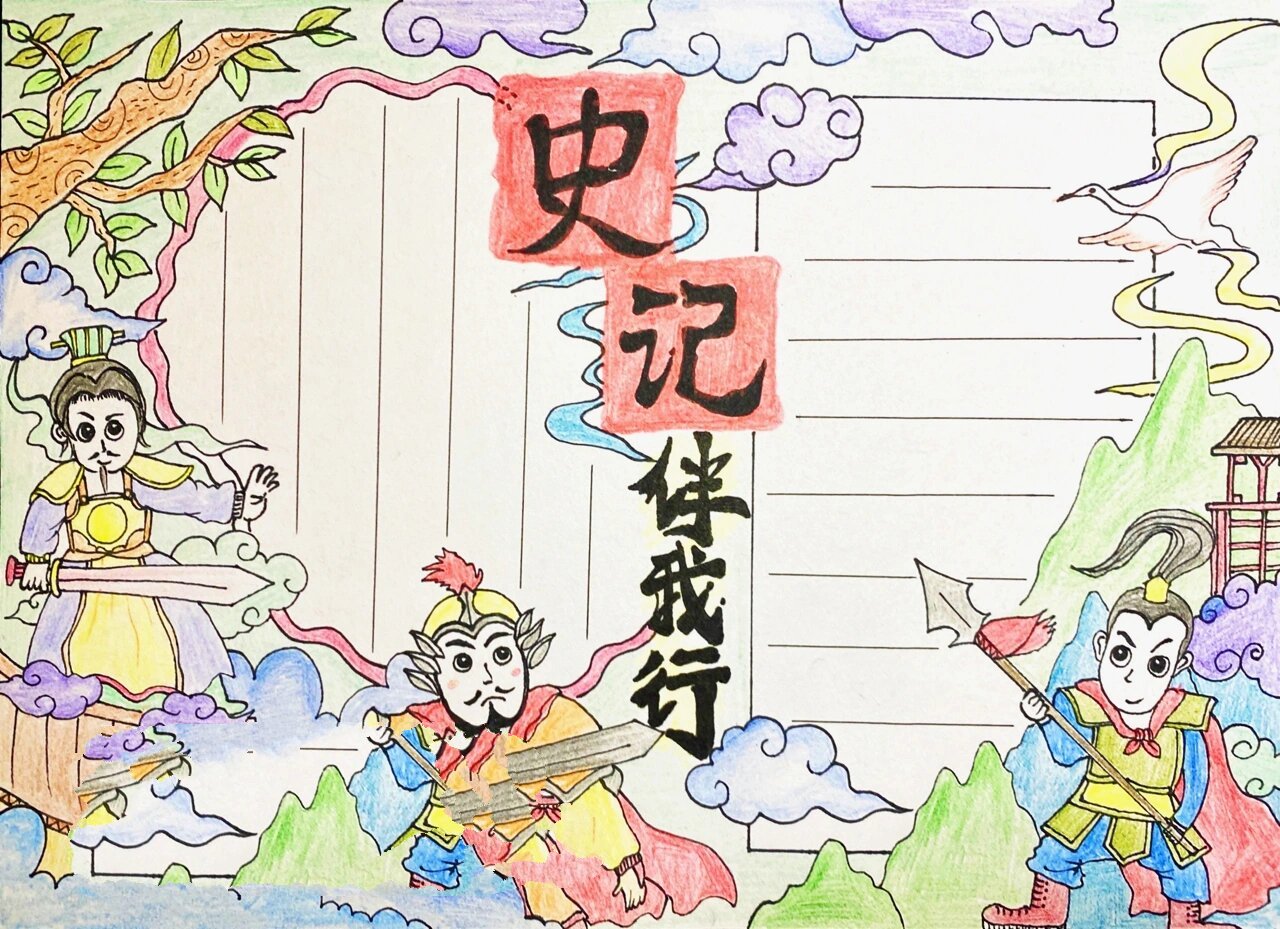 史记
伴我行